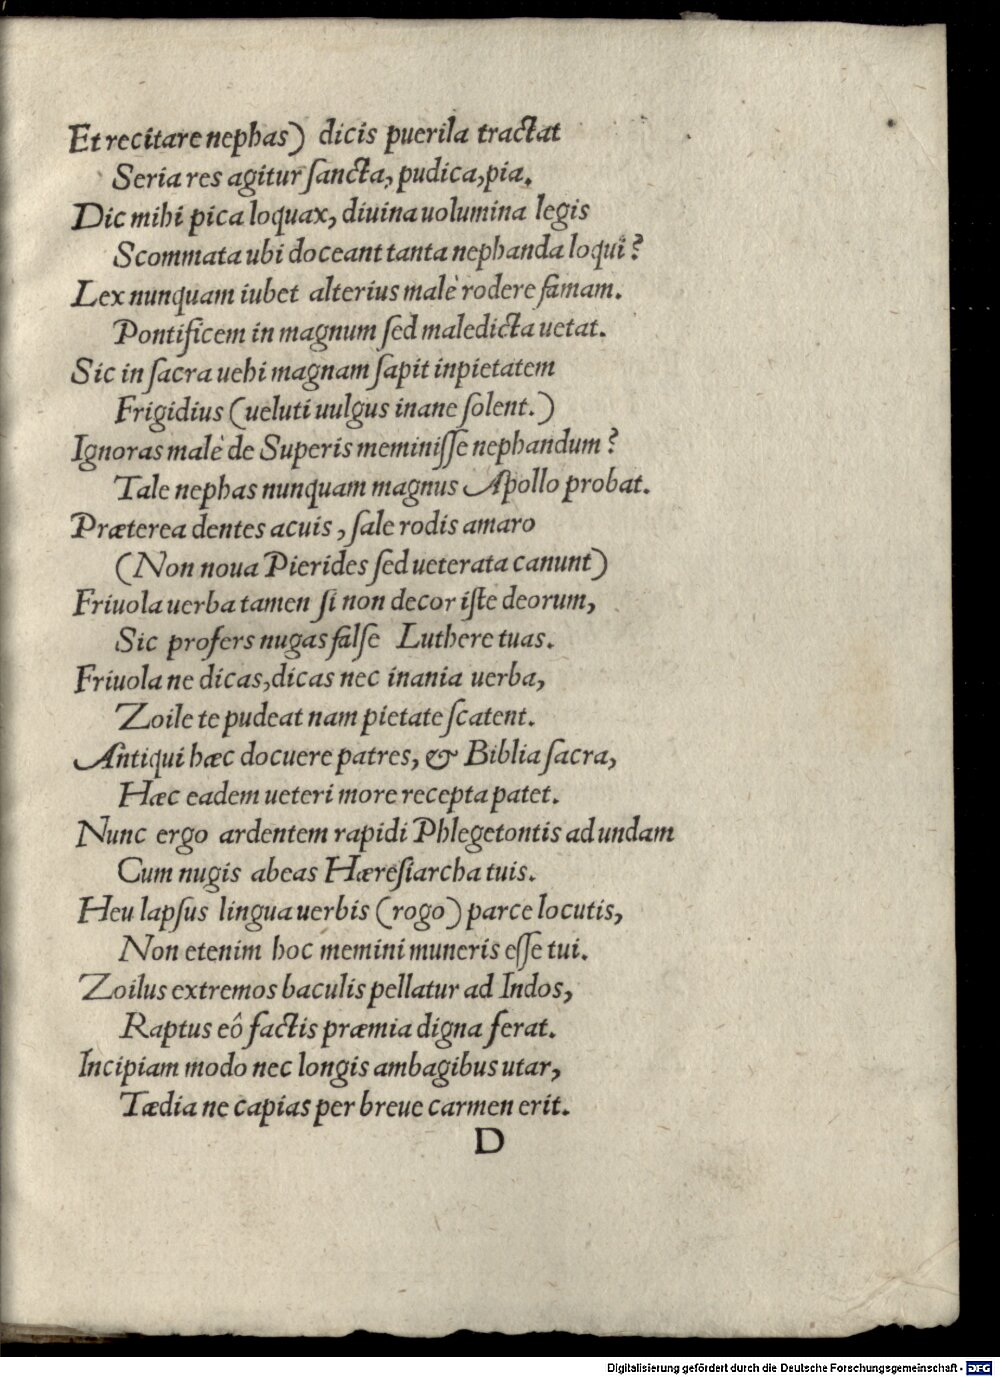 Et recitare nephas) dicis puerila tractat
Seria res agitur sancta, pudica, pia.
Dic mihi pica loquax, diuina uolumina legis
Scommata ubi doceant tanta nephanda loqui?
Lex nunquam iubet alterius malè rodere famam.
Pontificem in magnum sed maledicta uetat.
Sic in sacra uehi magnam sapit inpietatem
Frigidius (ueluti uulgus inane solent.)
Ignoras malè de Superis meminisse nephandum?
Tale nephas nunquam magnus Apollo probat.
Præterea dentes acuis, sale rodis amaro
(Non noua Pierides sed ueterata canunt)
Friuola uerba tamen si non decor iste deorum,
Sic profers nugas false Luthere tuas.
Friuola ne dicas, dicas nec inania uerba,
Zoile te pudeat nam pietate scatent.
Antiqui hæc docuere patres, & Biblia sacra,
Hæc eadem ueteri more recepta patet.
Nunc ergo ardentem rapidi Phlegetontis ad undam
Cum nugis abeas Hæresiarcha tuis.
Heu lapsus lingua uerbis (rogo) parce locutis,
Non etenim hoc memini muneris esse tui.
Zoilus extremos baculis pellatur ad Indos,
Raptus eô factis præmia digna ferat.
Incipiam modo nec longis ambagibus utar,
Tædia ne capias per breue carmen erit.
D
Digitalisierung gefördert durch die Deutsche Forschungsgemeinschaft - DFG